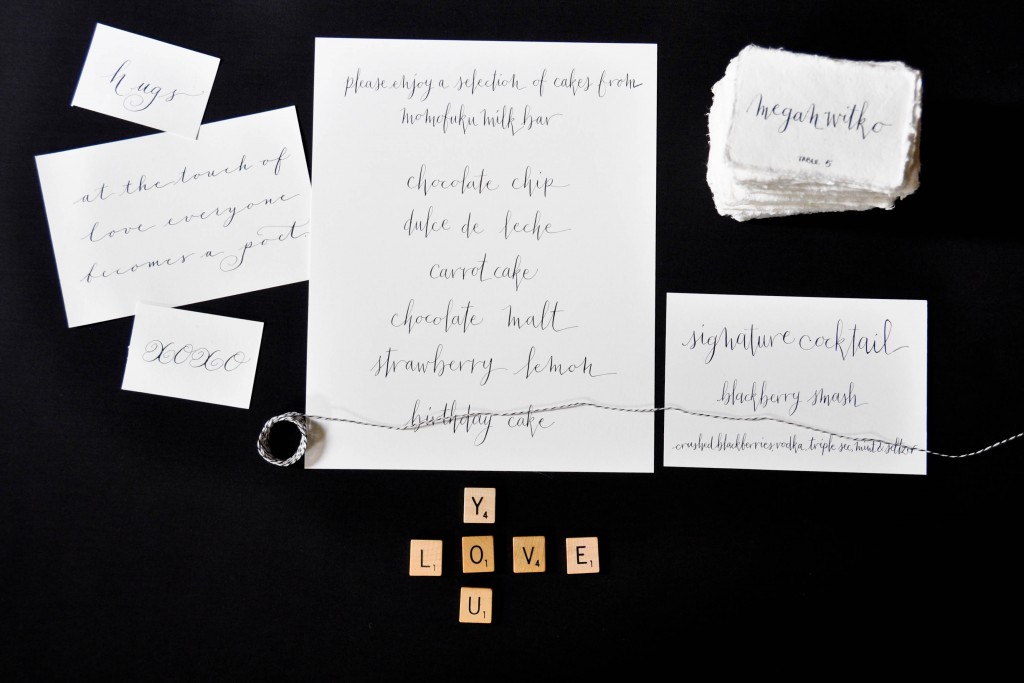 hugs
at the touch of
love everyone
becomes a poet.
xoxo
please enjoy a selection of cakes from
momofuku milk bar
chocolate chip
dulce de leche
carrot cake
chocolate malt
strawberry lemon
birthday cake
megan witko
TABLE 5
signature cocktail
blackberry smash
crushed blackberries, vodka, triple sec, mint & seltzer
Y4
L1 O1 V4 E1
U1